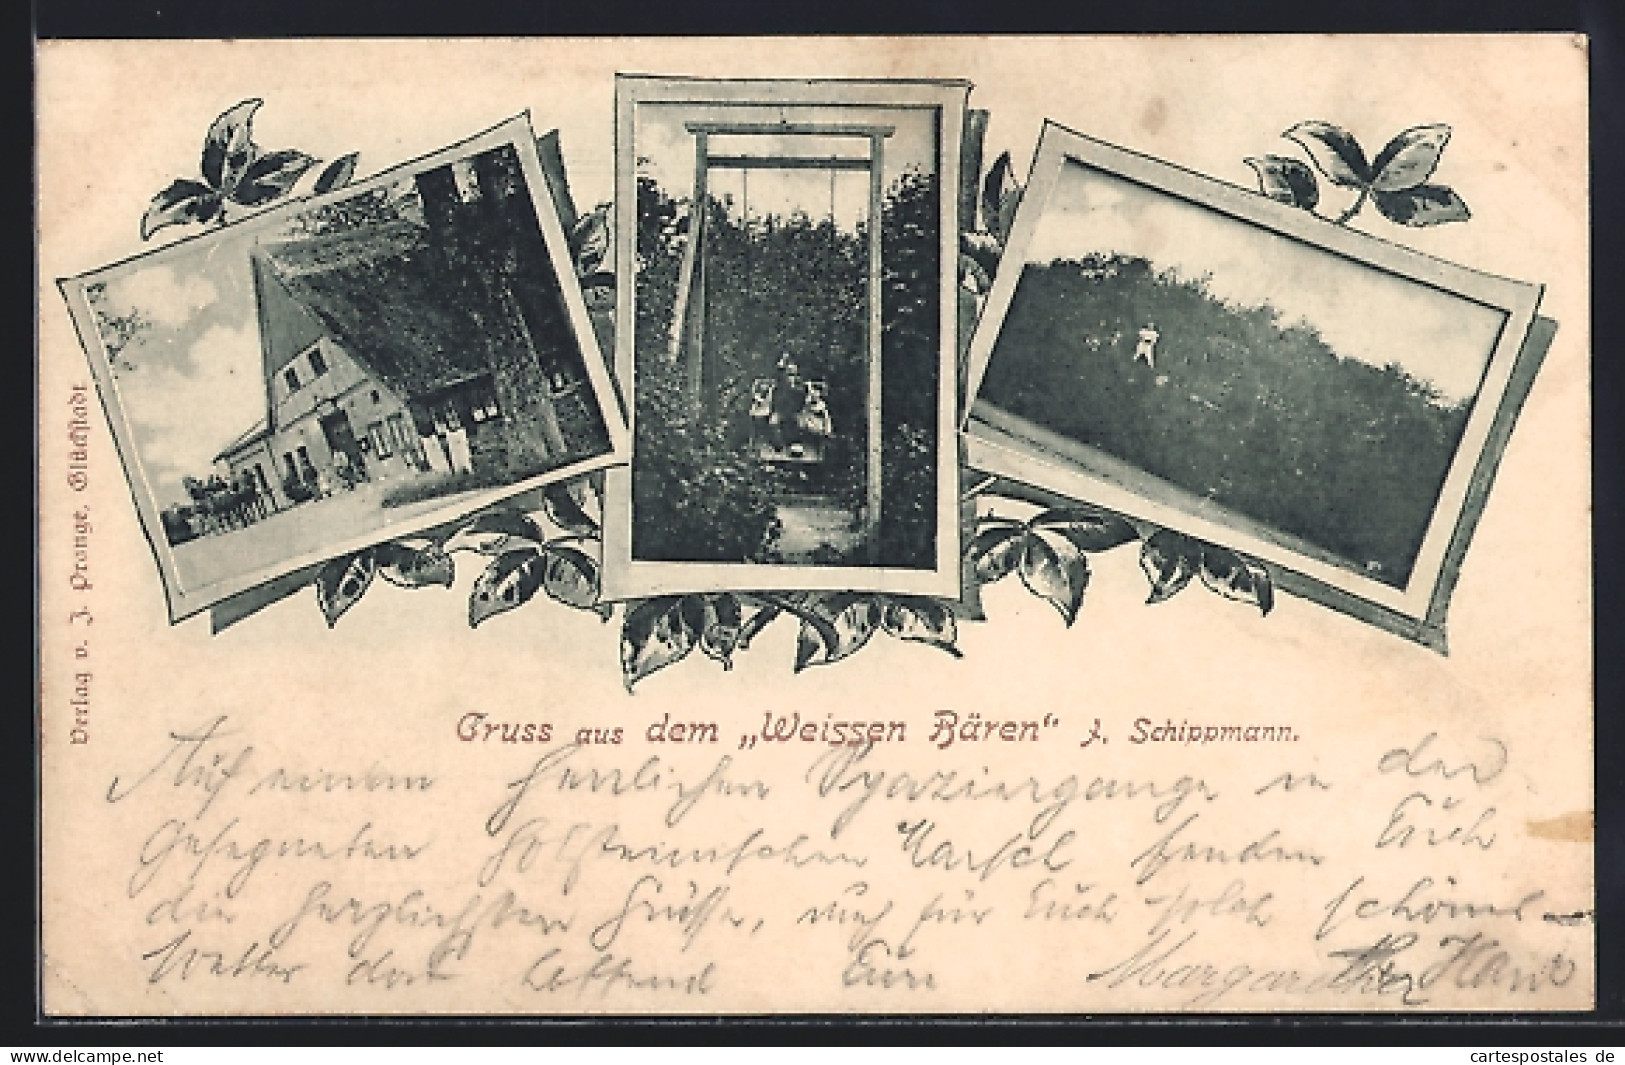 Verlag v. J. Prange, Glückstadt
Gruss aus dem „Weissen Bären“ J. Schippmann.
Auf einem herrlichen Spaziergange in der
gesegneten holsteinischen Marsch senden Euch
die herzlichsten Grüsse, auch für Euch solch schönes
Wetter dort hoffend Eure Margarethe Hans
www.delcampe.net
cartespostales de